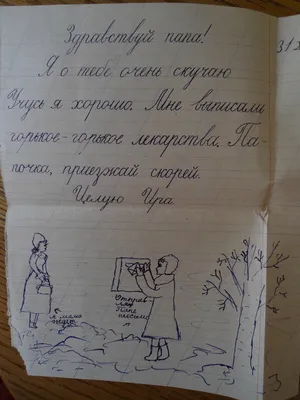 Здравствуй папа!
Я о тебе очень скучаю
Учусь я хорошо. Мне выписали
горькое-горькое лекарства. Па-
почка, приезжай скорей.
Целую Ира.
Отправ-
ляю
папе
письмо
а мама
31
3